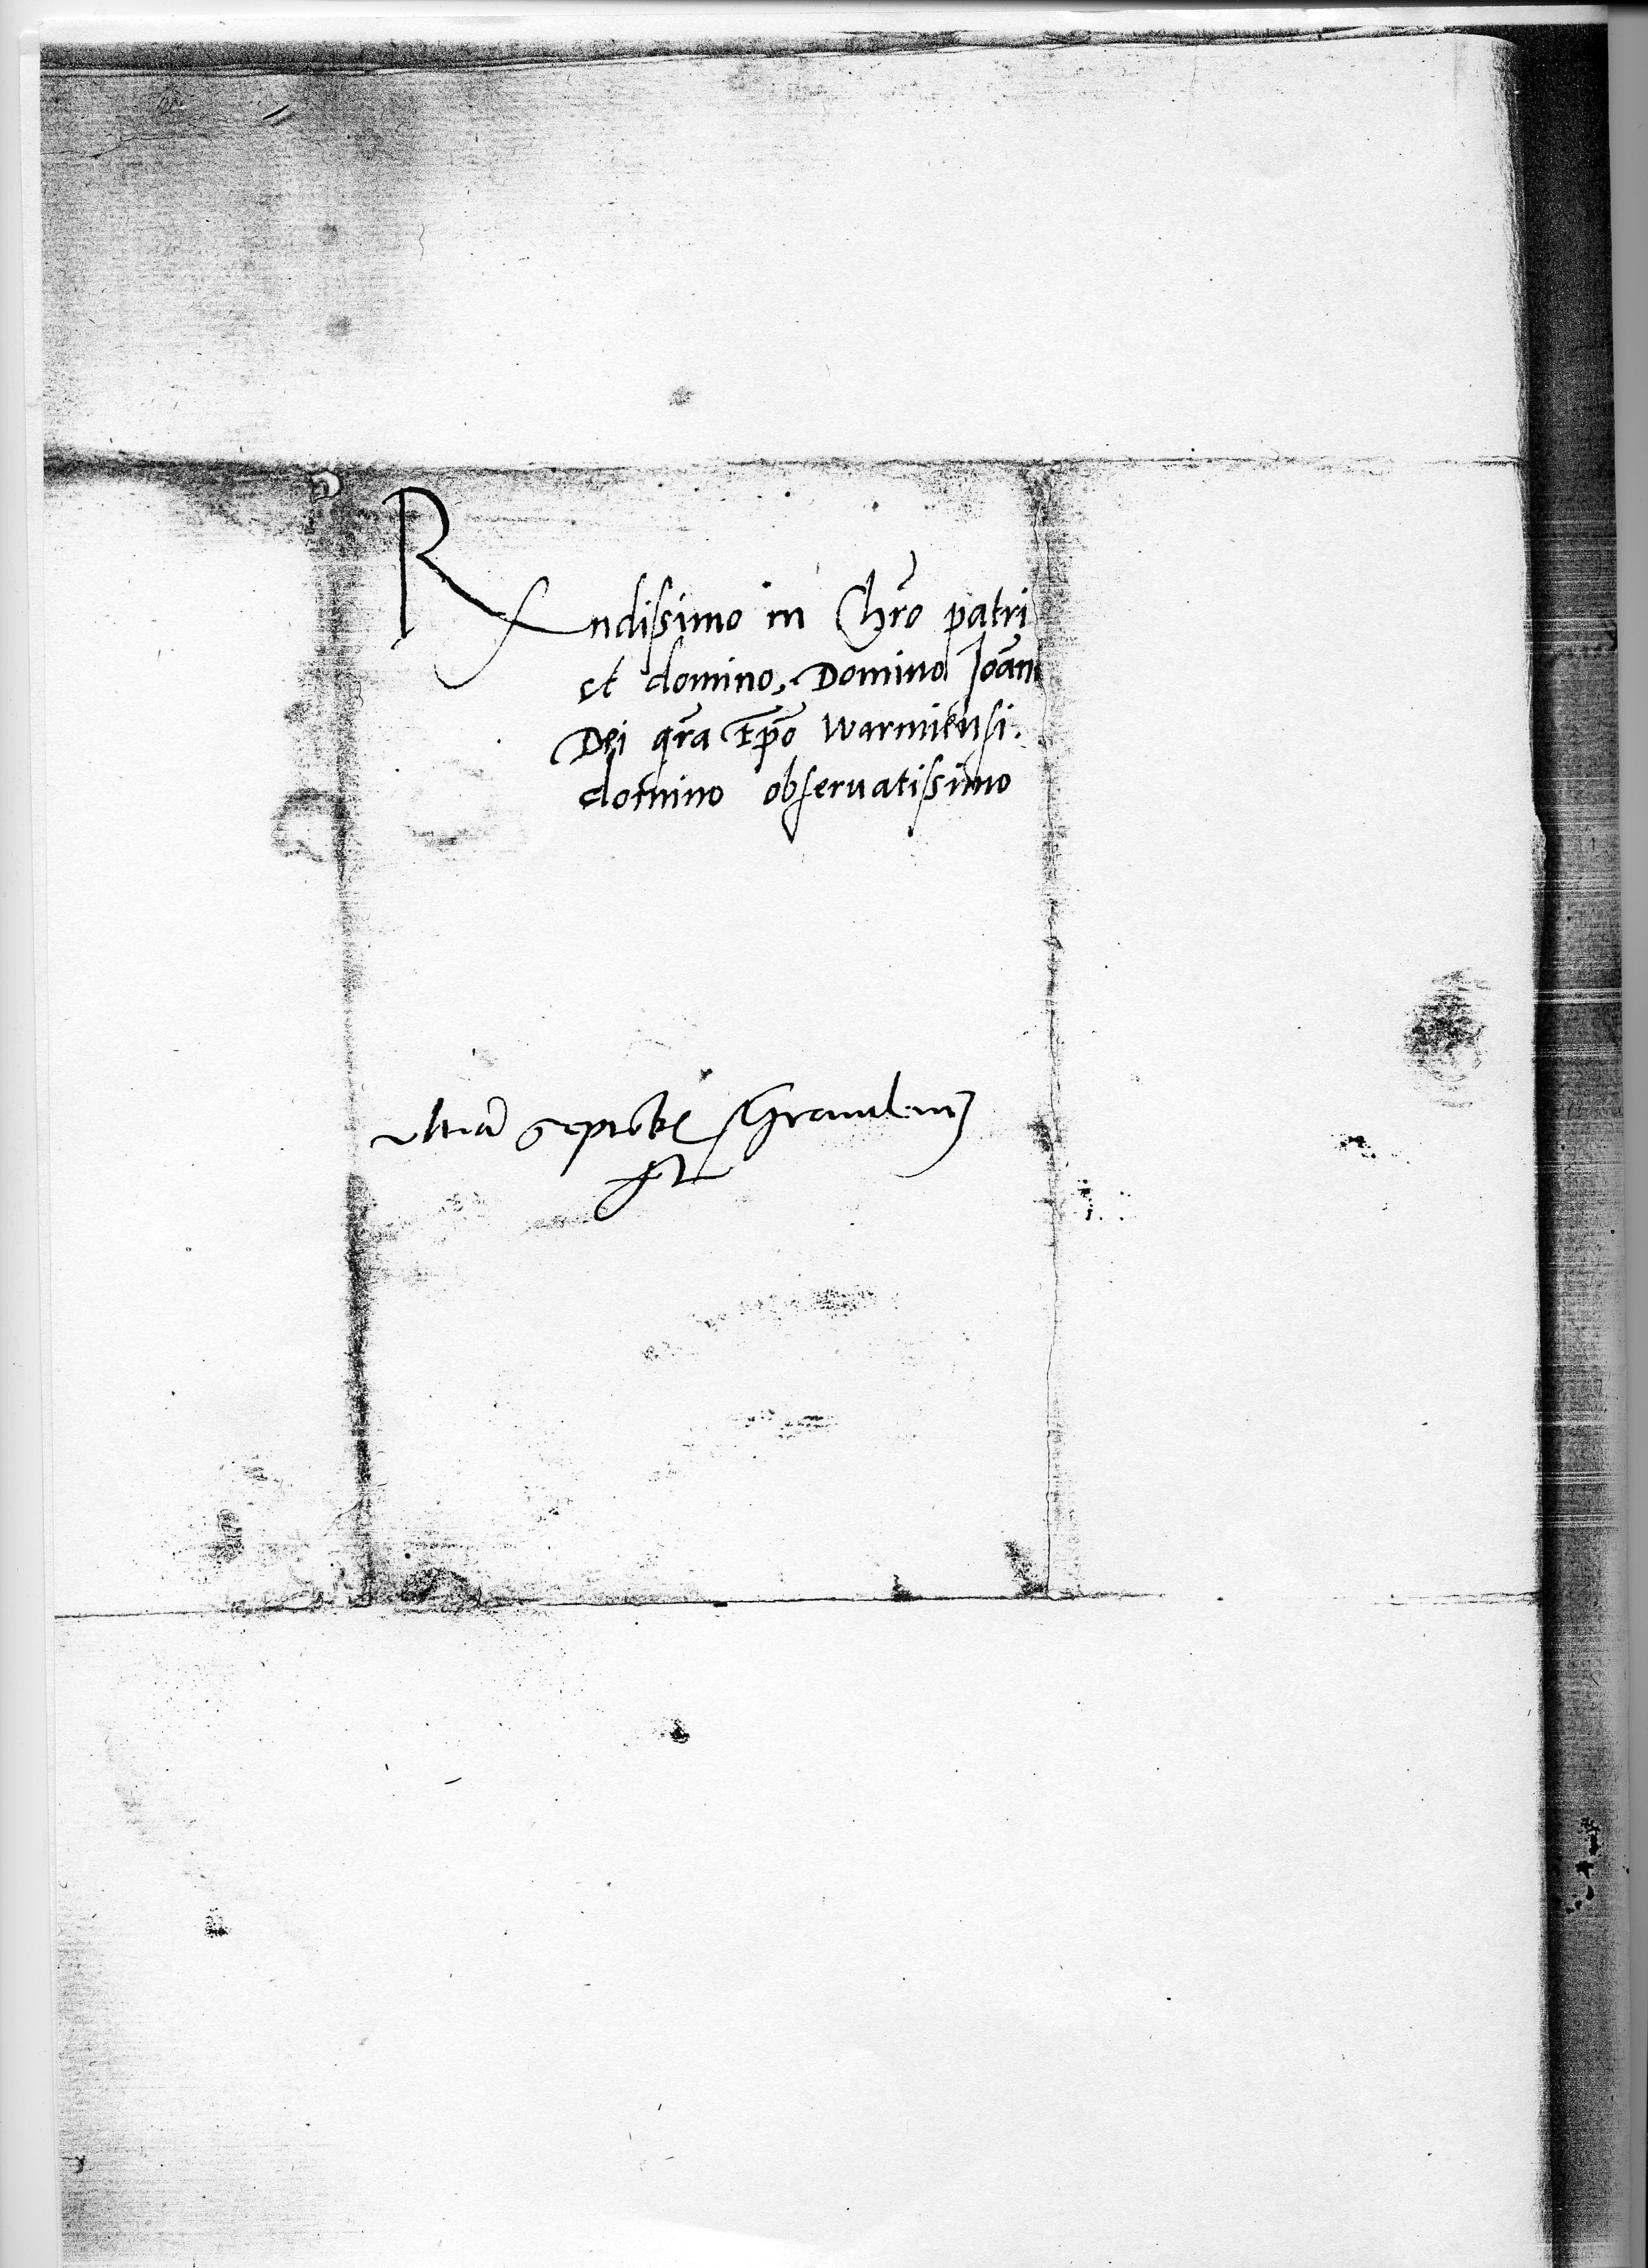 Rndissimo in Chro patri
et domino, Domino Joan
Dei gra Epo Warmiensi.
domino observatissimo
ultima septebr